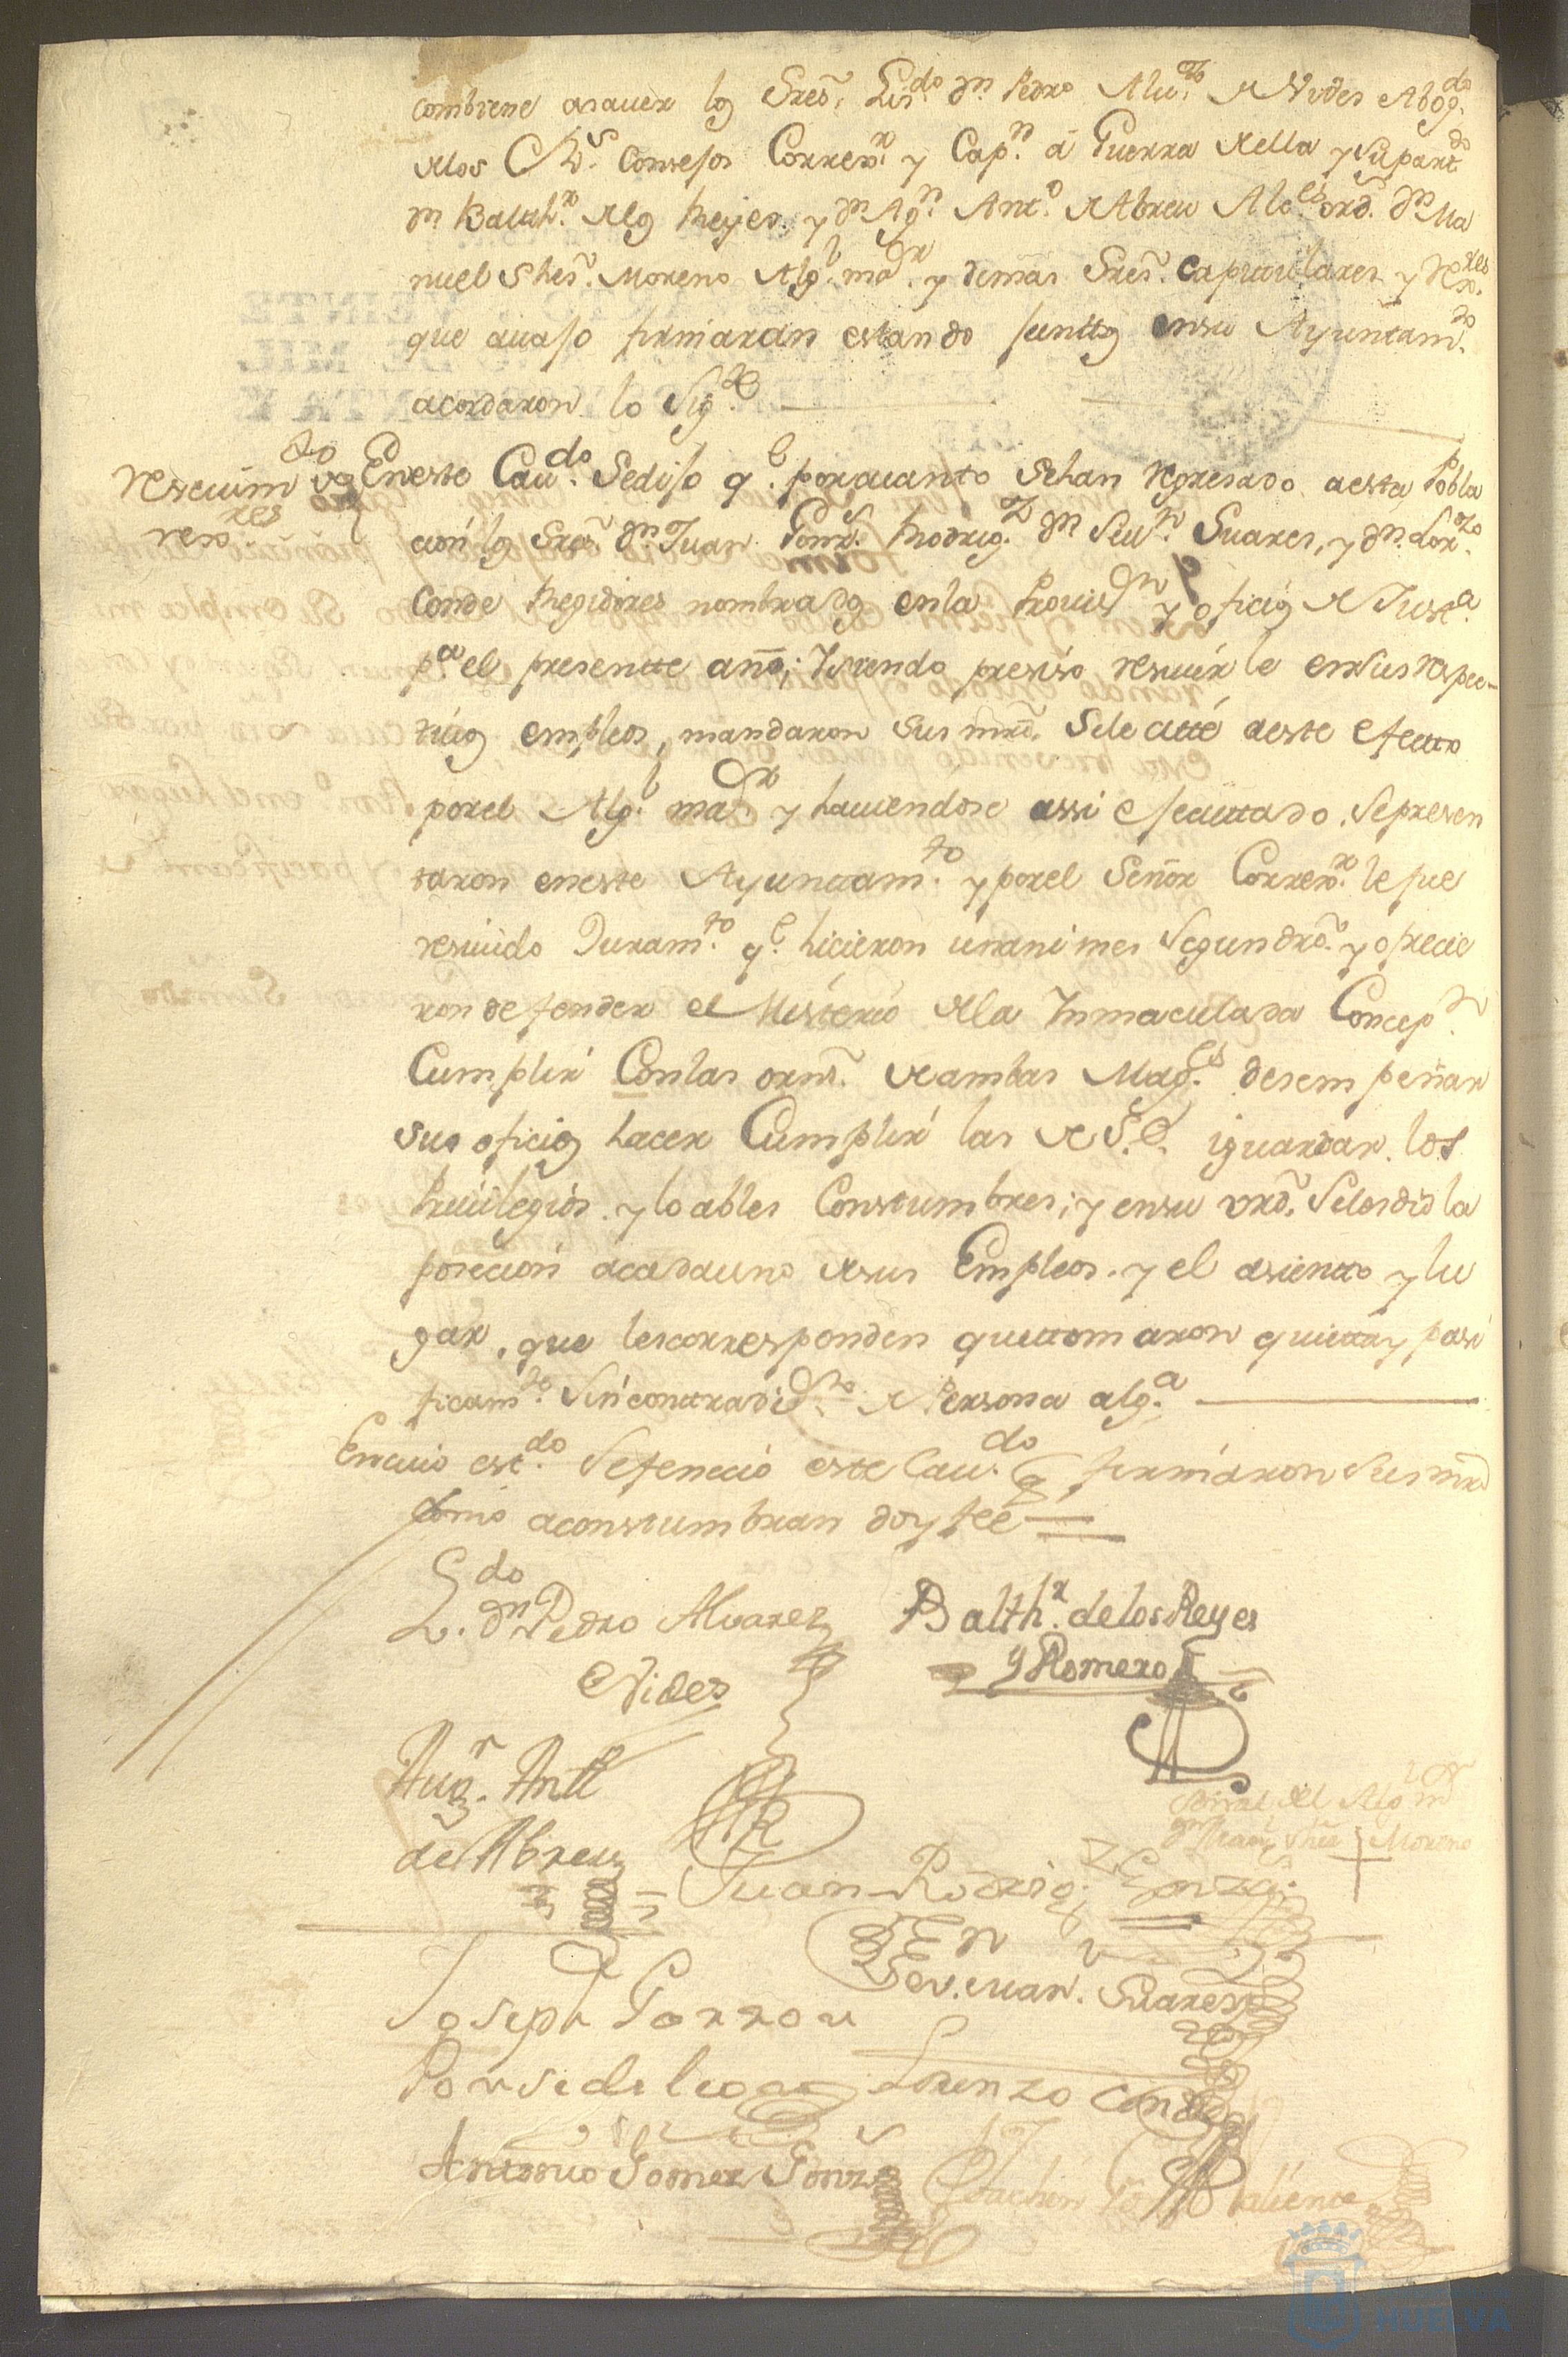 combiene asauer los Sres. Lizdo. Dn. Pedro Alvz. de Vides Abogdo.
de los Rs. Consejos Correxr. y Capn. á Guerra de ella y supartdo.
Dn. Balthr. de los Reyes, y Dn. Agn. Anto. de Abreu Alces. ordo. Dn. Ma
nuel Shes. Moreno Algl. maor. y demas Sres. Capitulares y Rexres.
que auajo firmaran estando juntos ensu Ayuntamto.
acordaron lo sigte.
resciuimto. de
rexres.
Eneste Caudo. Sedijo qe. porquanto sehan regresado aesta Pobla
cion los Sres. Dn. Juan Gonzs. Rodrigz. Dn. Seun. Suares, y Dn. Lorzo.
Conde Regidores nombrados enla Prouison. y oficios de Justa.
pa. el presentte año; Y siendo presiso resiuirle ensus respec-
tiuos empleos, mandaron sus mrds. Sele citté aeste efecto
porel Algl. maor. y hauiendose assi efecuttado, Sepresen
taron eneste Ayuntamto. y porel Señor Correxr. le fue
resiuido Juramto. qe. hicieron unanimes Segun dro. y ofrecie
ron defender el Misterio dela Inmaculada Concepn.
Cumplir Conlas orns. de ambas Magds. desempeñar
sus oficios hacer Cumplir las de S.E. iguardar los
Priuilegios y loables Constumbres; y ensu vrd. Selesdió la
posecion acadauno desus Empleos y el asientto y lu
gar, que lescorresponden quettomaron quietta y pasi
ficamte. Sin contradison. de Persona alga.
Encuio estdo. Sefeneció este Caudo. q firmaron sus mrds
como aconstumbran doy fee
Ldo. Dn Pedro Alvarez
Vides
Balthr. delos Reyes
y Romero
Augn. Antto
de Abreu
Señal del Algl mor
Dn Manl Shes Moreno
Juan Rodrigz Gonzs.
Sevn. Juan. Suares
Joseph Garrou
Ponse de leon
Lorenzo Conde
Antonio Gomez Gonzs
HUELVA